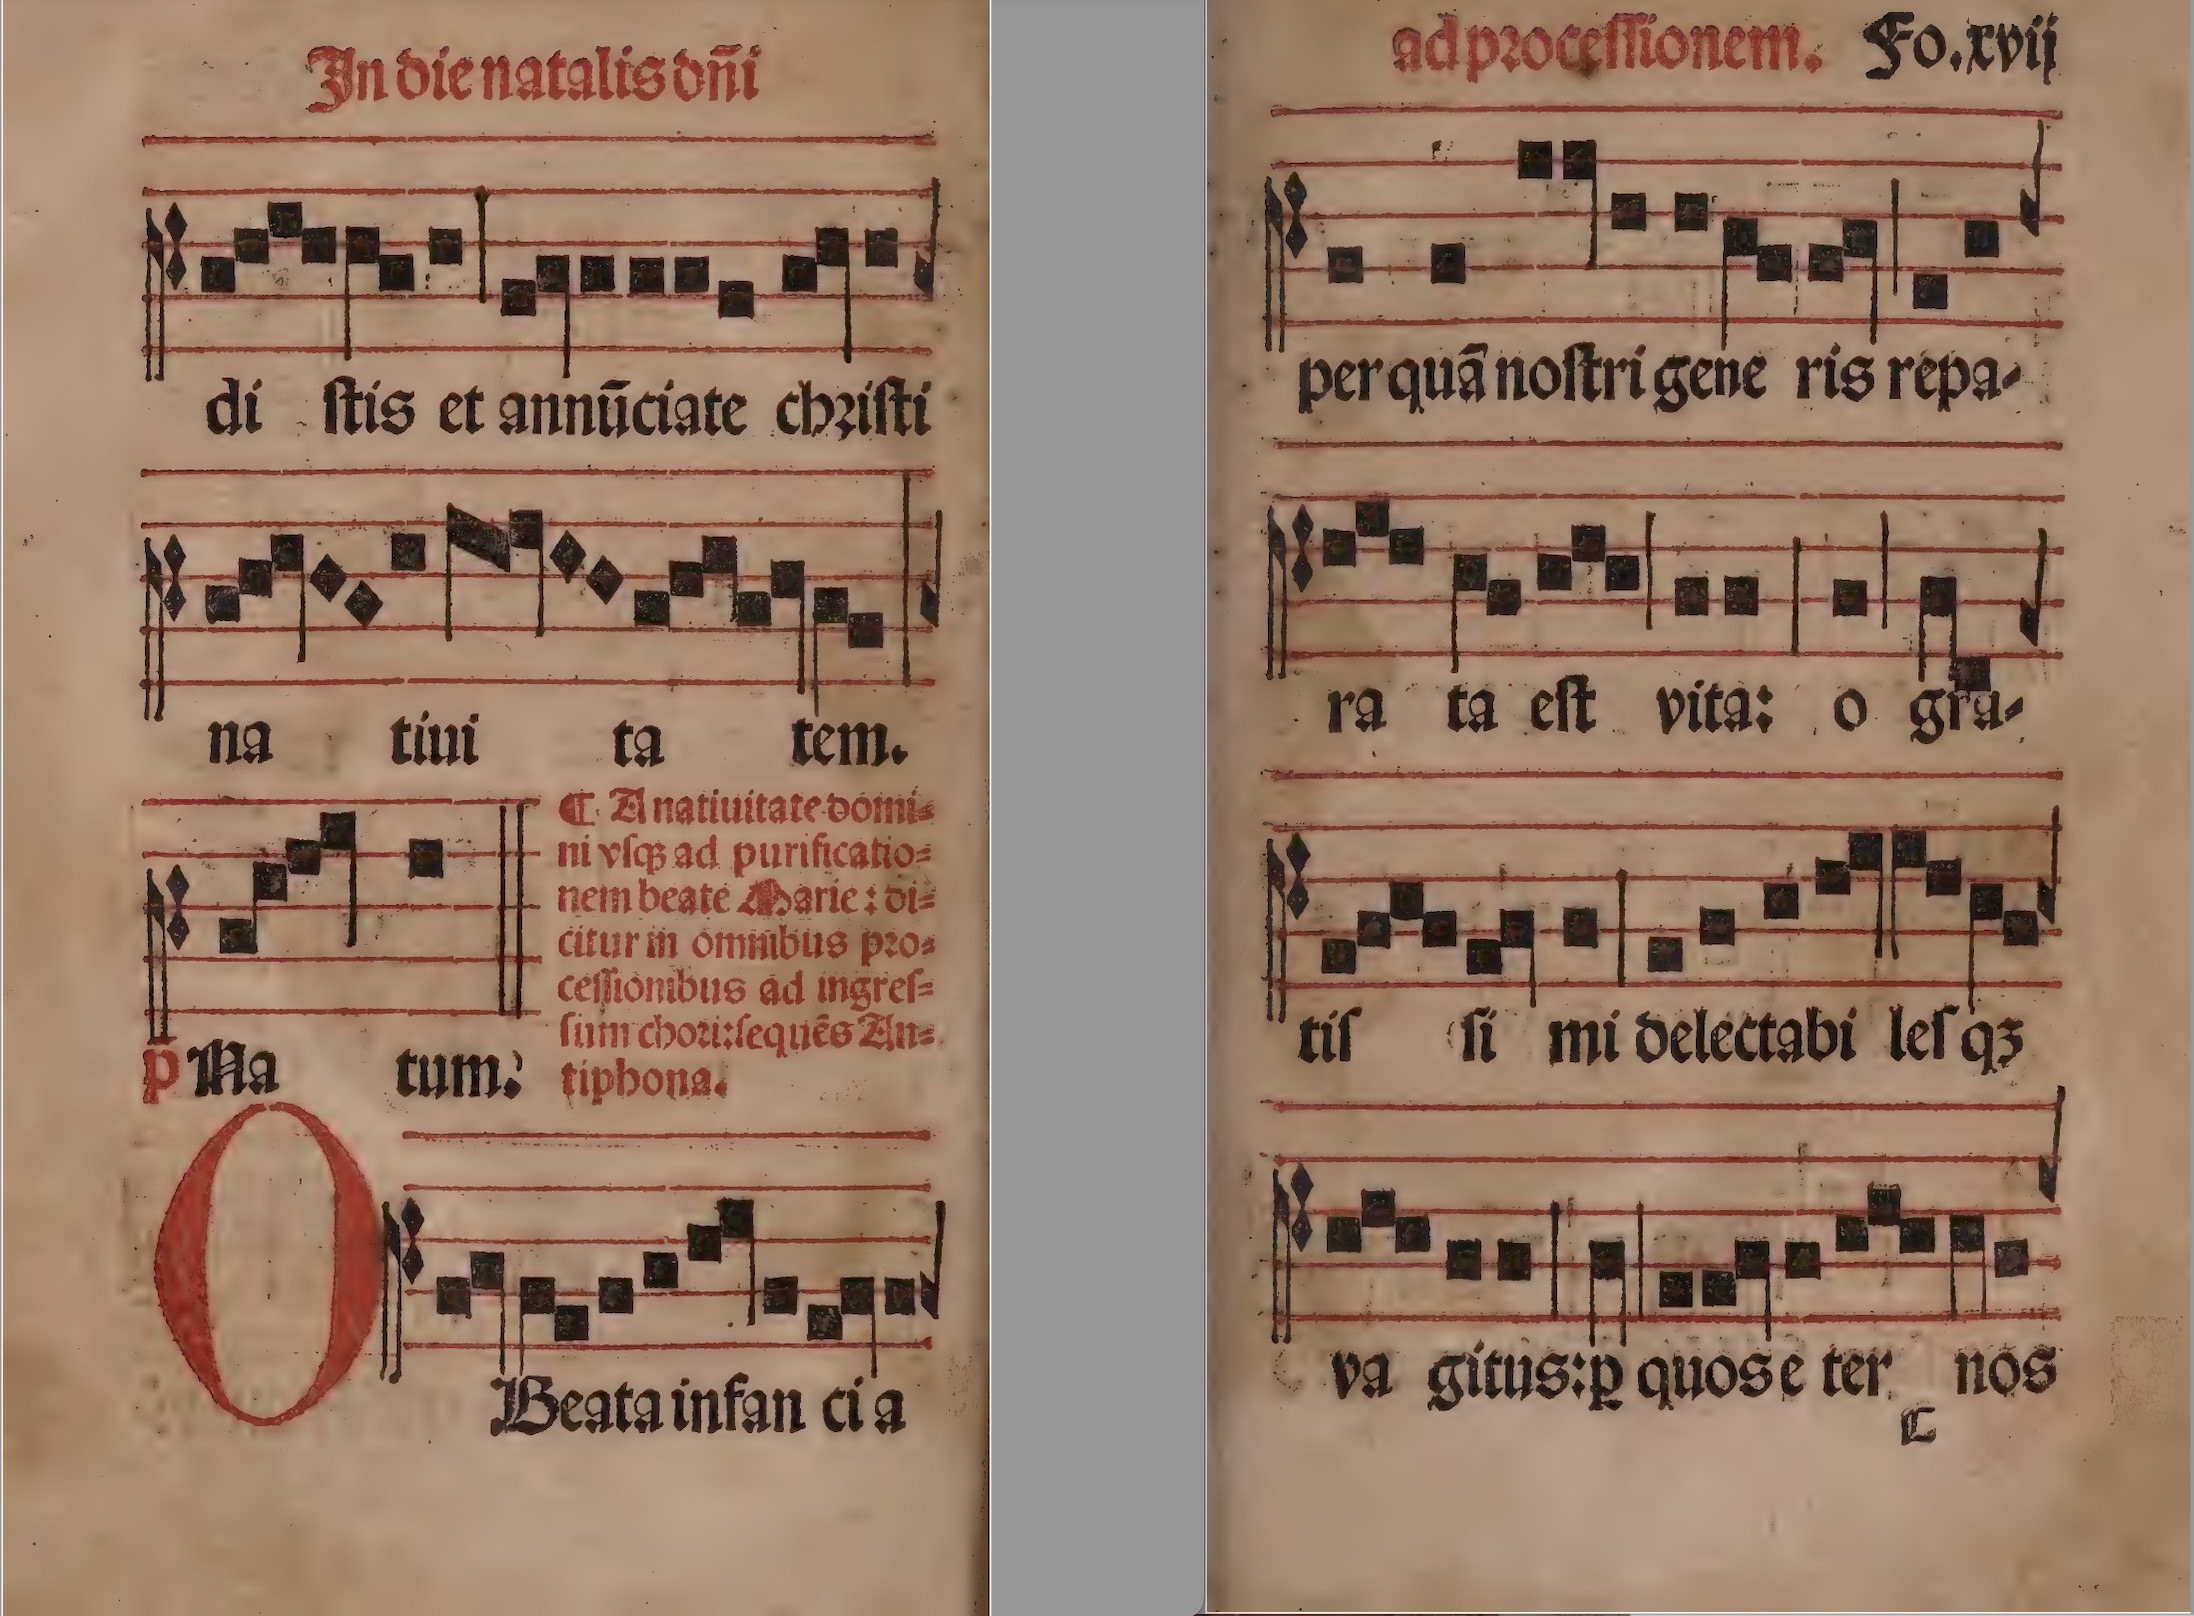 In die natalis dñi
di ſtis et annūciate chriſti
na tiui ta tem.
¶ A natiuitate domi-
ni vſqꝫ ad purificatio-
nem beate Marie: di-
citur in omnibus pro-
ceſſionibus ad ingreſ-
ſum chori: ſequēs An-
tiphona.
p̄ Na tum.
O Beata infan ci a
ad proceſſionem. Fo. xvij
per quā noſtri gene ris repa-
ra ta eſt vita: o gra-
tiſ ſi mi delectabi leſ qꝫ
va gitus: ꝑ quos e ter nos
C